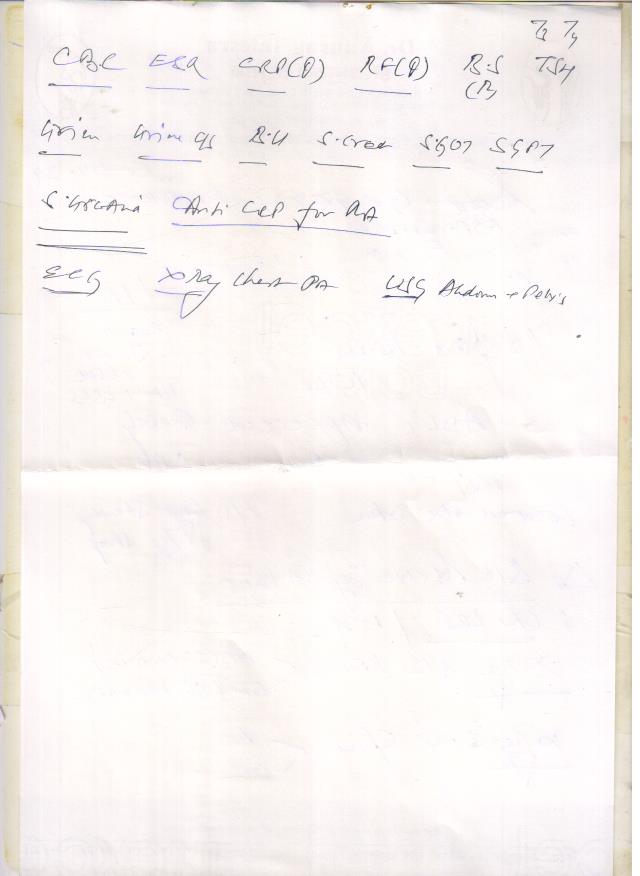 T3 T4
CBC ESR CRP(Q) RF(Q) B.S TSH
(R)
Urine Urine B.U S.Creat SGOT SGPT
S. Uric Acid Anti CCP for RA
ECG X Ray Chest PA USG Abdomen + Pelvis